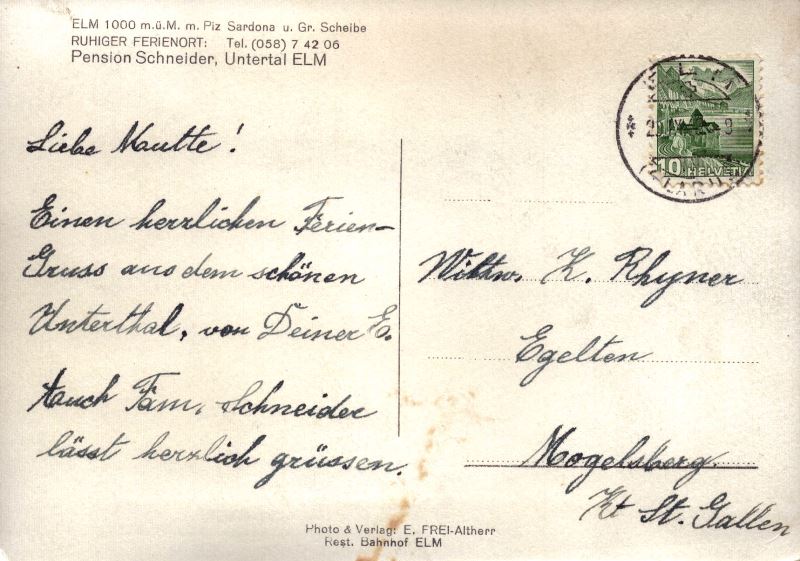 ELM 1000 m.ü.M. m. Piz Sardona u. Gr. Scheibe
RUHIGER FERIENORT: Tel. (058) 7 42 06
Pension Schneider, Untertal ELM
10 HELVETIA
Liebe Mautte!
Einen herzlichen Ferien-
Gruss aus dem schönen
Unterthal, von Deiner E.
Auch Fam. Schneider
lässt herzlich grüssen.
Wittw. K. Rhyner
Egelten
Mogelsberg.
Kt St. Gallen
Photo & Verlag: E. FREI-Altherr
Rest. Bahnhof ELM